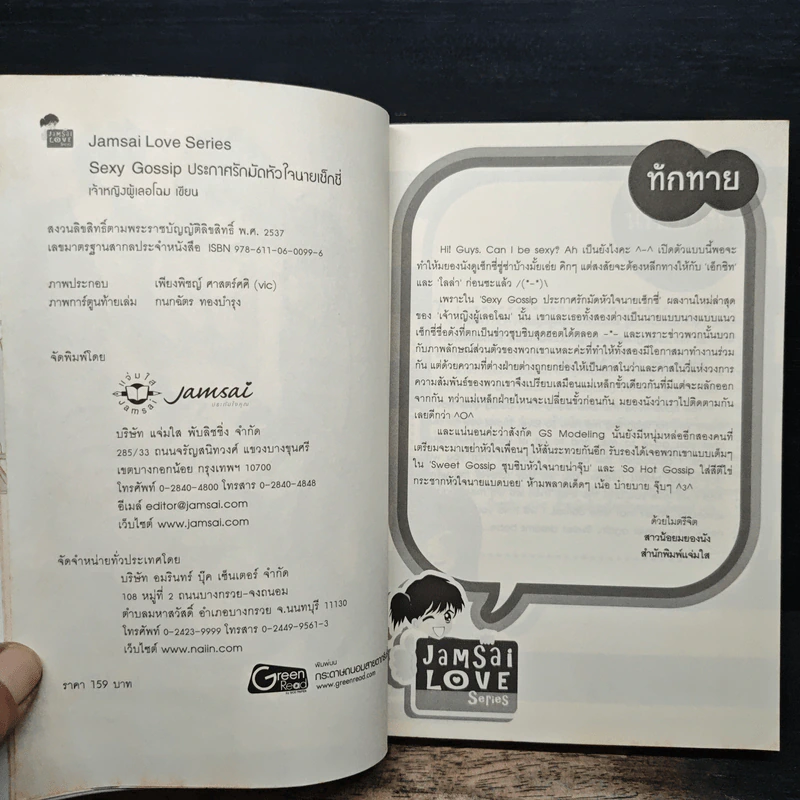 JAMSAI
LOVE
Series
Jamsai Love Series
Sexy Gossip ประกาศรักมัดหัวใจนายเซ็กซี่
เจ้าหญิงผู้เลอโฉม เขียน
สงวนลิขสิทธิ์ตามพระราชบัญญัติลิขสิทธิ์ พ.ศ. 2537
เลขมาตรฐานสากลประจำหนังสือ ISBN 978-611-06-0099-6
ภาพประกอบ เพียงพิชญ์ ศาสตร์ศศิ (vic)
ภาพการ์ตูนท้ายเล่ม กนกฉัตร ทองบำรุง
จัดพิมพ์โดย
แจ่มใส
Jamsai
Jamsai
บริษัท แจ่มใส พับลิชชิ่ง จำกัด
285/33 ถนนจรัญสนิทวงศ์ แขวงบางขุนศรี
เขตบางกอกน้อย กรุงเทพฯ 10700
โทรศัพท์ 0-2840-4800 โทรสาร 0-2840-4848
อีเมล์ editor@jamsai.com
เว็บไซต์ www.jamsai.com
จัดจำหน่ายทั่วประเทศโดย
บริษัท อมรินทร์ บุ๊ค เซ็นเตอร์ จำกัด
108 หมู่ที่ 2 ถนนบางกรวย-จงถนอม
ตำบลมหาสวัสดิ์ อำเภอบางกรวย จ.นนทบุรี 11130
โทรศัพท์ 0-2423-9999 โทรสาร 0-2449-9561-3
เว็บไซต์ www.naiin.com
ราคา 159 บาท
Green
Read
พิมพ์บน
กระดาษถนอมสายตากรีนรี้ด
www.greenread.com
ทักทาย
Hi! Guys, Can I be sexy? Ah เป็นยังไงคะ ^-^ เปิดตัวแบบนี้พอจะ
ทำให้มยองนังดูเซ็กซี่ซู่ซ่าบ้างมั้ยเอ่ย คิกๆ แต่สงสัยจะต้องหลีกทางให้กับ 'เอ็กซิท'
และ 'ไลล่า' ก่อนซะแล้ว /(*-*)\
เพราะใน 'Sexy Gossip ประกาศรักมัดหัวใจนายเซ็กซี่' ผลงานใหม่ล่าสุด
ของ 'เจ้าหญิงผู้เลอโฉม' นั้น เขาและเธอทั้งสองต่างเป็นนายแบบนางแบบแนว
เซ็กซี่ชื่อดังที่ตกเป็นข่าวซุบซิบสุดฮอตได้ตลอด -*- และเพราะข่าวพวกนั้นบวก
กับภาพลักษณ์ส่วนตัวของพวกเขาแหละค่ะที่ทำให้ทั้งสองมีโอกาสมาทำงานร่วม
กัน แต่ด้วยความที่ต่างฝ่ายต่างถูกยกย่องให้เป็นคาสโนว่าและคาสโนวี่แห่งวงการ
ความสัมพันธ์ของพวกเขาจึงเปรียบเสมือนแม่เหล็กขั้วเดียวกันที่มีแต่จะผลักออก
จากกัน ทว่าแม่เหล็กฝ่ายไหนจะเปลี่ยนขั้วก่อนกัน มยองนังว่าเราไปติดตามกัน
เลยดีกว่า ^O^
และแน่นอนค่ะว่าสังกัด GS Modeling นั้นยังมีหนุ่มหล่ออีกสองคนที่
เตรียมจะมาเขย่าหัวใจเพื่อนๆ ให้สั่นระทวยกันอีก รับรองได้เจอพวกเขาแบบเต็มๆ
ใน 'Sweet Gossip ซุบซิบหัวใจนายน่าจุ๊บ' และ 'So Hot Gossip ใส่สีตีไข่
กระชากหัวใจนายแบดบอย' ห้ามพลาดเด็ดๆ เน้อ บ๊ายบาย จุ๊บๆ ^3^
ด้วยไมตรีจิต
สาวน้อยมยองนัง
สำนักพิมพ์แจ่มใส
JAMSAI
LOVE
Series